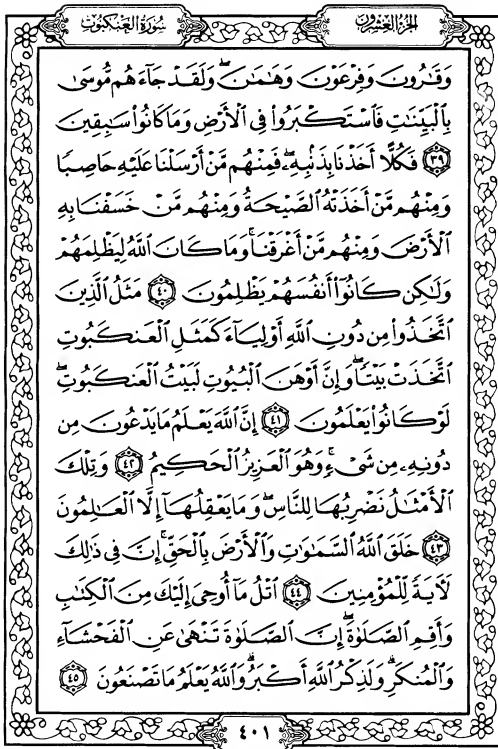 سُورَةُ الْعَنكَبُوتِ
الجُزْءُ العِشْرُونَ
وَقَٰرُونَ وَفِرْعَوْنَ وَهَٰمَٰنَ ۖ وَلَقَدْ جَآءَهُم مُّوسَىٰ
بِالْبَيِّنَٰتِ فَاسْتَكْبَرُوا فِي الْأَرْضِ وَمَا كَانُوا سَٰبِقِينَ
٣٩ فَكُلًّا أَخَذْنَا بِذَنۢبِهِۦ ۖ فَمِنْهُم مَّنْ أَرْسَلْنَا عَلَيْهِ حَاصِبًا
وَمِنْهُم مَّنْ أَخَذَتْهُ الصَّيْحَةُ وَمِنْهُم مَّنْ خَسَفْنَا بِهِ
الْأَرْضَ وَمِنْهُم مَّنْ أَغْرَقْنَا ۚ وَمَا كَانَ اللَّهُ لِيَظْلِمَهُمْ
وَلَٰكِن كَانُوٓا أَنفُسَهُمْ يَظْلِمُونَ ٤٠ مَثَلُ الَّذِينَ
اتَّخَذُوا مِن دُونِ اللَّهِ أَوْلِيَآءَ كَمَثَلِ الْعَنكَبُوتِ
اتَّخَذَتْ بَيْتًا ۖ وَإِنَّ أَوْهَنَ الْبُيُوتِ لَبَيْتُ الْعَنكَبُوتِ ۖ
لَوْ كَانُوا يَعْلَمُونَ ٤١ إِنَّ اللَّهَ يَعْلَمُ مَا يَدْعُونَ مِن
دُونِهِۦ مِن شَيْءٍ ۚ وَهُوَ الْعَزِيزُ الْحَكِيمُ ٤٢ وَتِلْكَ
الْأَمْثَٰلُ نَضْرِبُهَا لِلنَّاسِ ۖ وَمَا يَعْقِلُهَآ إِلَّا الْعَٰلِمُونَ
٤٣ خَلَقَ اللَّهُ السَّمَٰوَٰتِ وَالْأَرْضَ بِالْحَقِّ ۚ إِنَّ فِي ذَٰلِكَ
لَءَايَةً لِّلْمُؤْمِنِينَ ٤٤ اتْلُ مَآ أُوحِيَ إِلَيْكَ مِنَ الْكِتَٰبِ
وَأَقِمِ الصَّلَوٰةَ ۖ إِنَّ الصَّلَوٰةَ تَنْهَىٰ عَنِ الْفَحْشَآءِ
وَالْمُنكَرِ ۗ وَلَذِكْرُ اللَّهِ أَكْبَرُ ۗ وَاللَّهُ يَعْلَمُ مَا تَصْنَعُونَ ٤٥
٤٠١